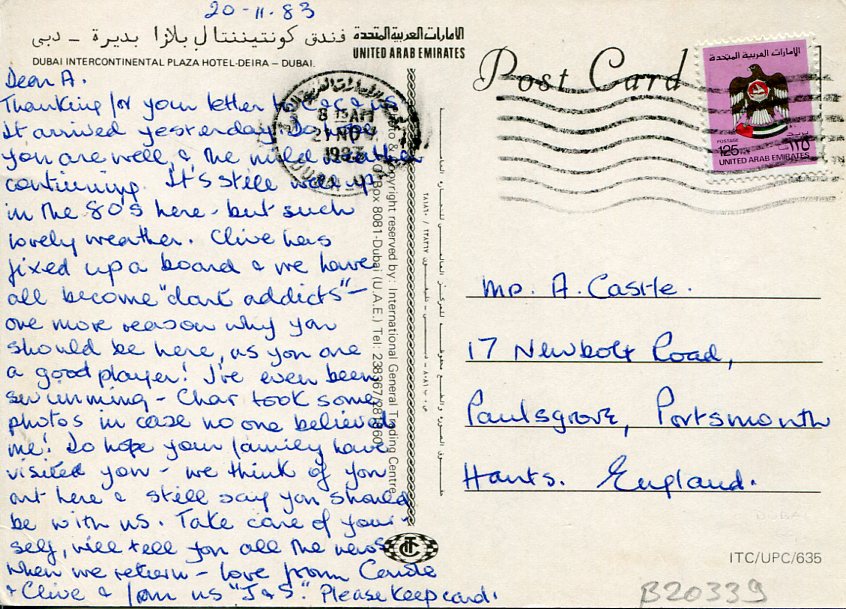 20-11-83
فندق كونتيننتال بلازا بديرة - دبى
الامارات العربية المتحدة
DUBAI INTERCONTINENTAL PLAZA HOTEL-DEIRA - DUBAI.
UNITED ARAB EMIRATES
Dear A.
Thanking for your letter to
It arrived yesterday. Do hope
you are well, & the mild weather
continuing. It's still well up
in the 80's here - but such
lovely weather. Clive has
fixed up a board & we have
all become "dart addicts" -
one more reason why you
should be here, as you are
a good player! I've even been
swimming - Char took some
photos in case no one believed
me! Do hope your family have
visited you - we think of you
out here & still say you should
be with us. Take care of your-
self, will tell you all the news
when we return - love from
& Clive & from us "J & S". Please keep card.
8 15 AM
21 NOV
1983
copyright reserved by: International General Trading Centre
Box 8081-Dubai (U.A.E.) Tel:
Post Card
الامارات العربية المتحدة
POSTAGE
125
١٢٥
UNITED ARAB EMIRATES
Mr. A. Castle.
17 Newbolt Road,
Paulsgrove, Portsmouth
Hants. England.
ITC
ITC/UPC/635
B20339